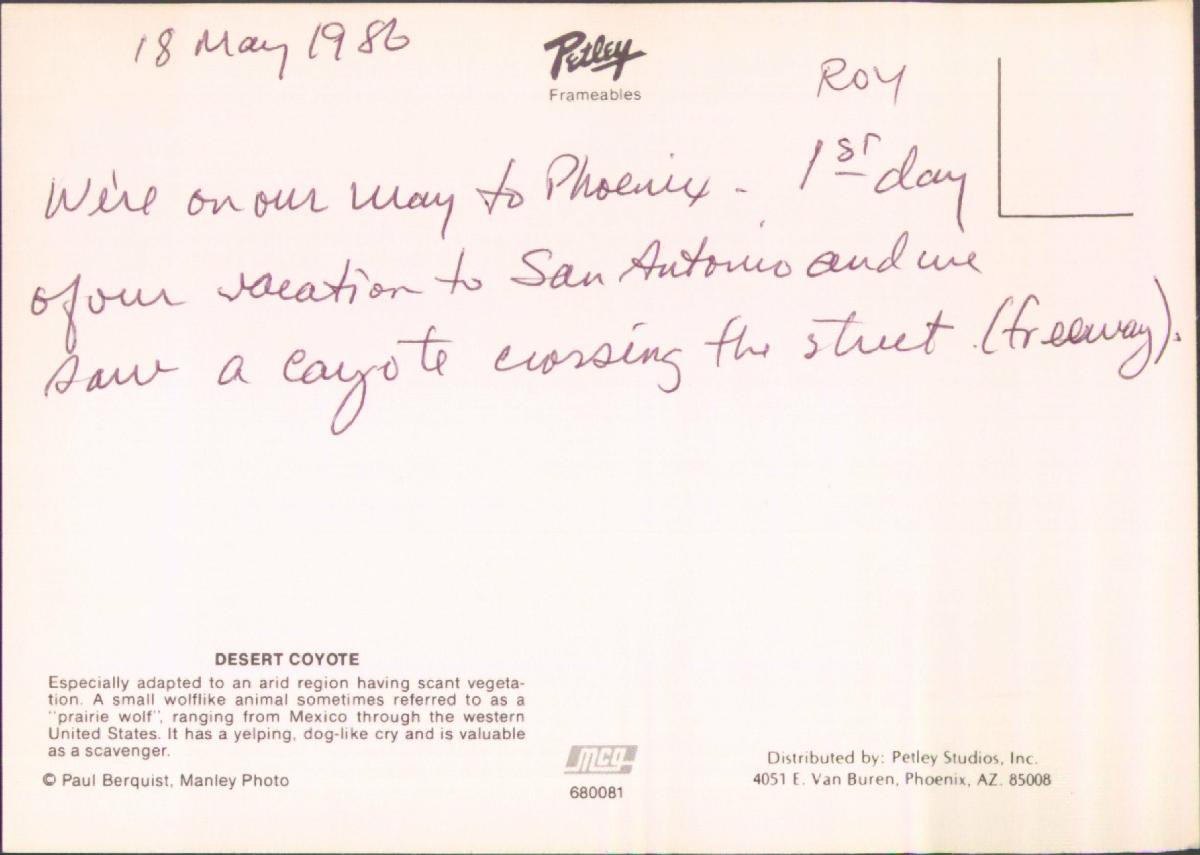 18 May 1986
Petley
Frameables
ROY
We're on our way to Phoenix - 1st day
of our vacation to San Antonio and we
saw a cayote crossing the street (freeway).
DESERT COYOTE
Especially adapted to an arid region having scant vegeta-
tion. A small wolflike animal sometimes referred to as a
"prairie wolf", ranging from Mexico through the western
United States. It has a yelping, dog-like cry and is valuable
as a scavenger.
© Paul Berquist, Manley Photo
mcg
680081
Distributed by: Petley Studios, Inc.
4051 E. Van Buren, Phoenix, AZ. 85008